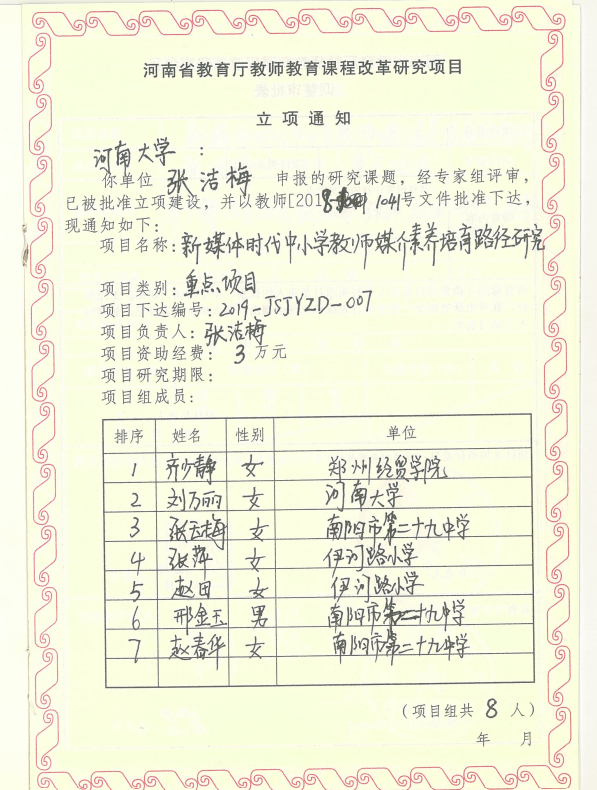 河南省教育厅教师教育课程改革研究项目
立项通知
河南大学：
你单位 张洁梅 申报的研究课题，经专家组评审，
已被批准立项建设，并以教师[2018] 1041号文件批准下达，
现通知如下：
项目名称：新媒体时代中小学教师媒介素养培育路径研究
项目类别：重点项目
项目下达编号：2019-JSJYZD-007
项目负责人：张洁梅
项目资助经费：3万元
项目研究期限：
项目组成员：
排序 姓名 性别 单位
1 齐少静 女 郑州经贸学院
2 刘万丽 女 河南大学
3 张云梅 女 南阳市第二十九中学
4 张萍 女 伊河路小学
5 赵田 女 伊河路小学
6 邢金玉 男 南阳市第二十九中学
7 赵春华 女 南阳市第二十九中学
（项目组共 8 人）
年 月